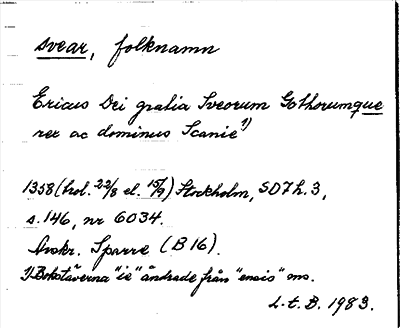 svear, folknamn
Ericus Dei gratia Sveorum Gothorumque
rex ac dominus Scanie 1)
1358 (trol. 22/8 el. 15/9) Stockholm, SD7 h.3,
s.146, nr 6034.
Avskr. Sparre (B 16).
1) Bokstäverna "ie" ändrade från "ensis" ms.
L.t.B. 1983.